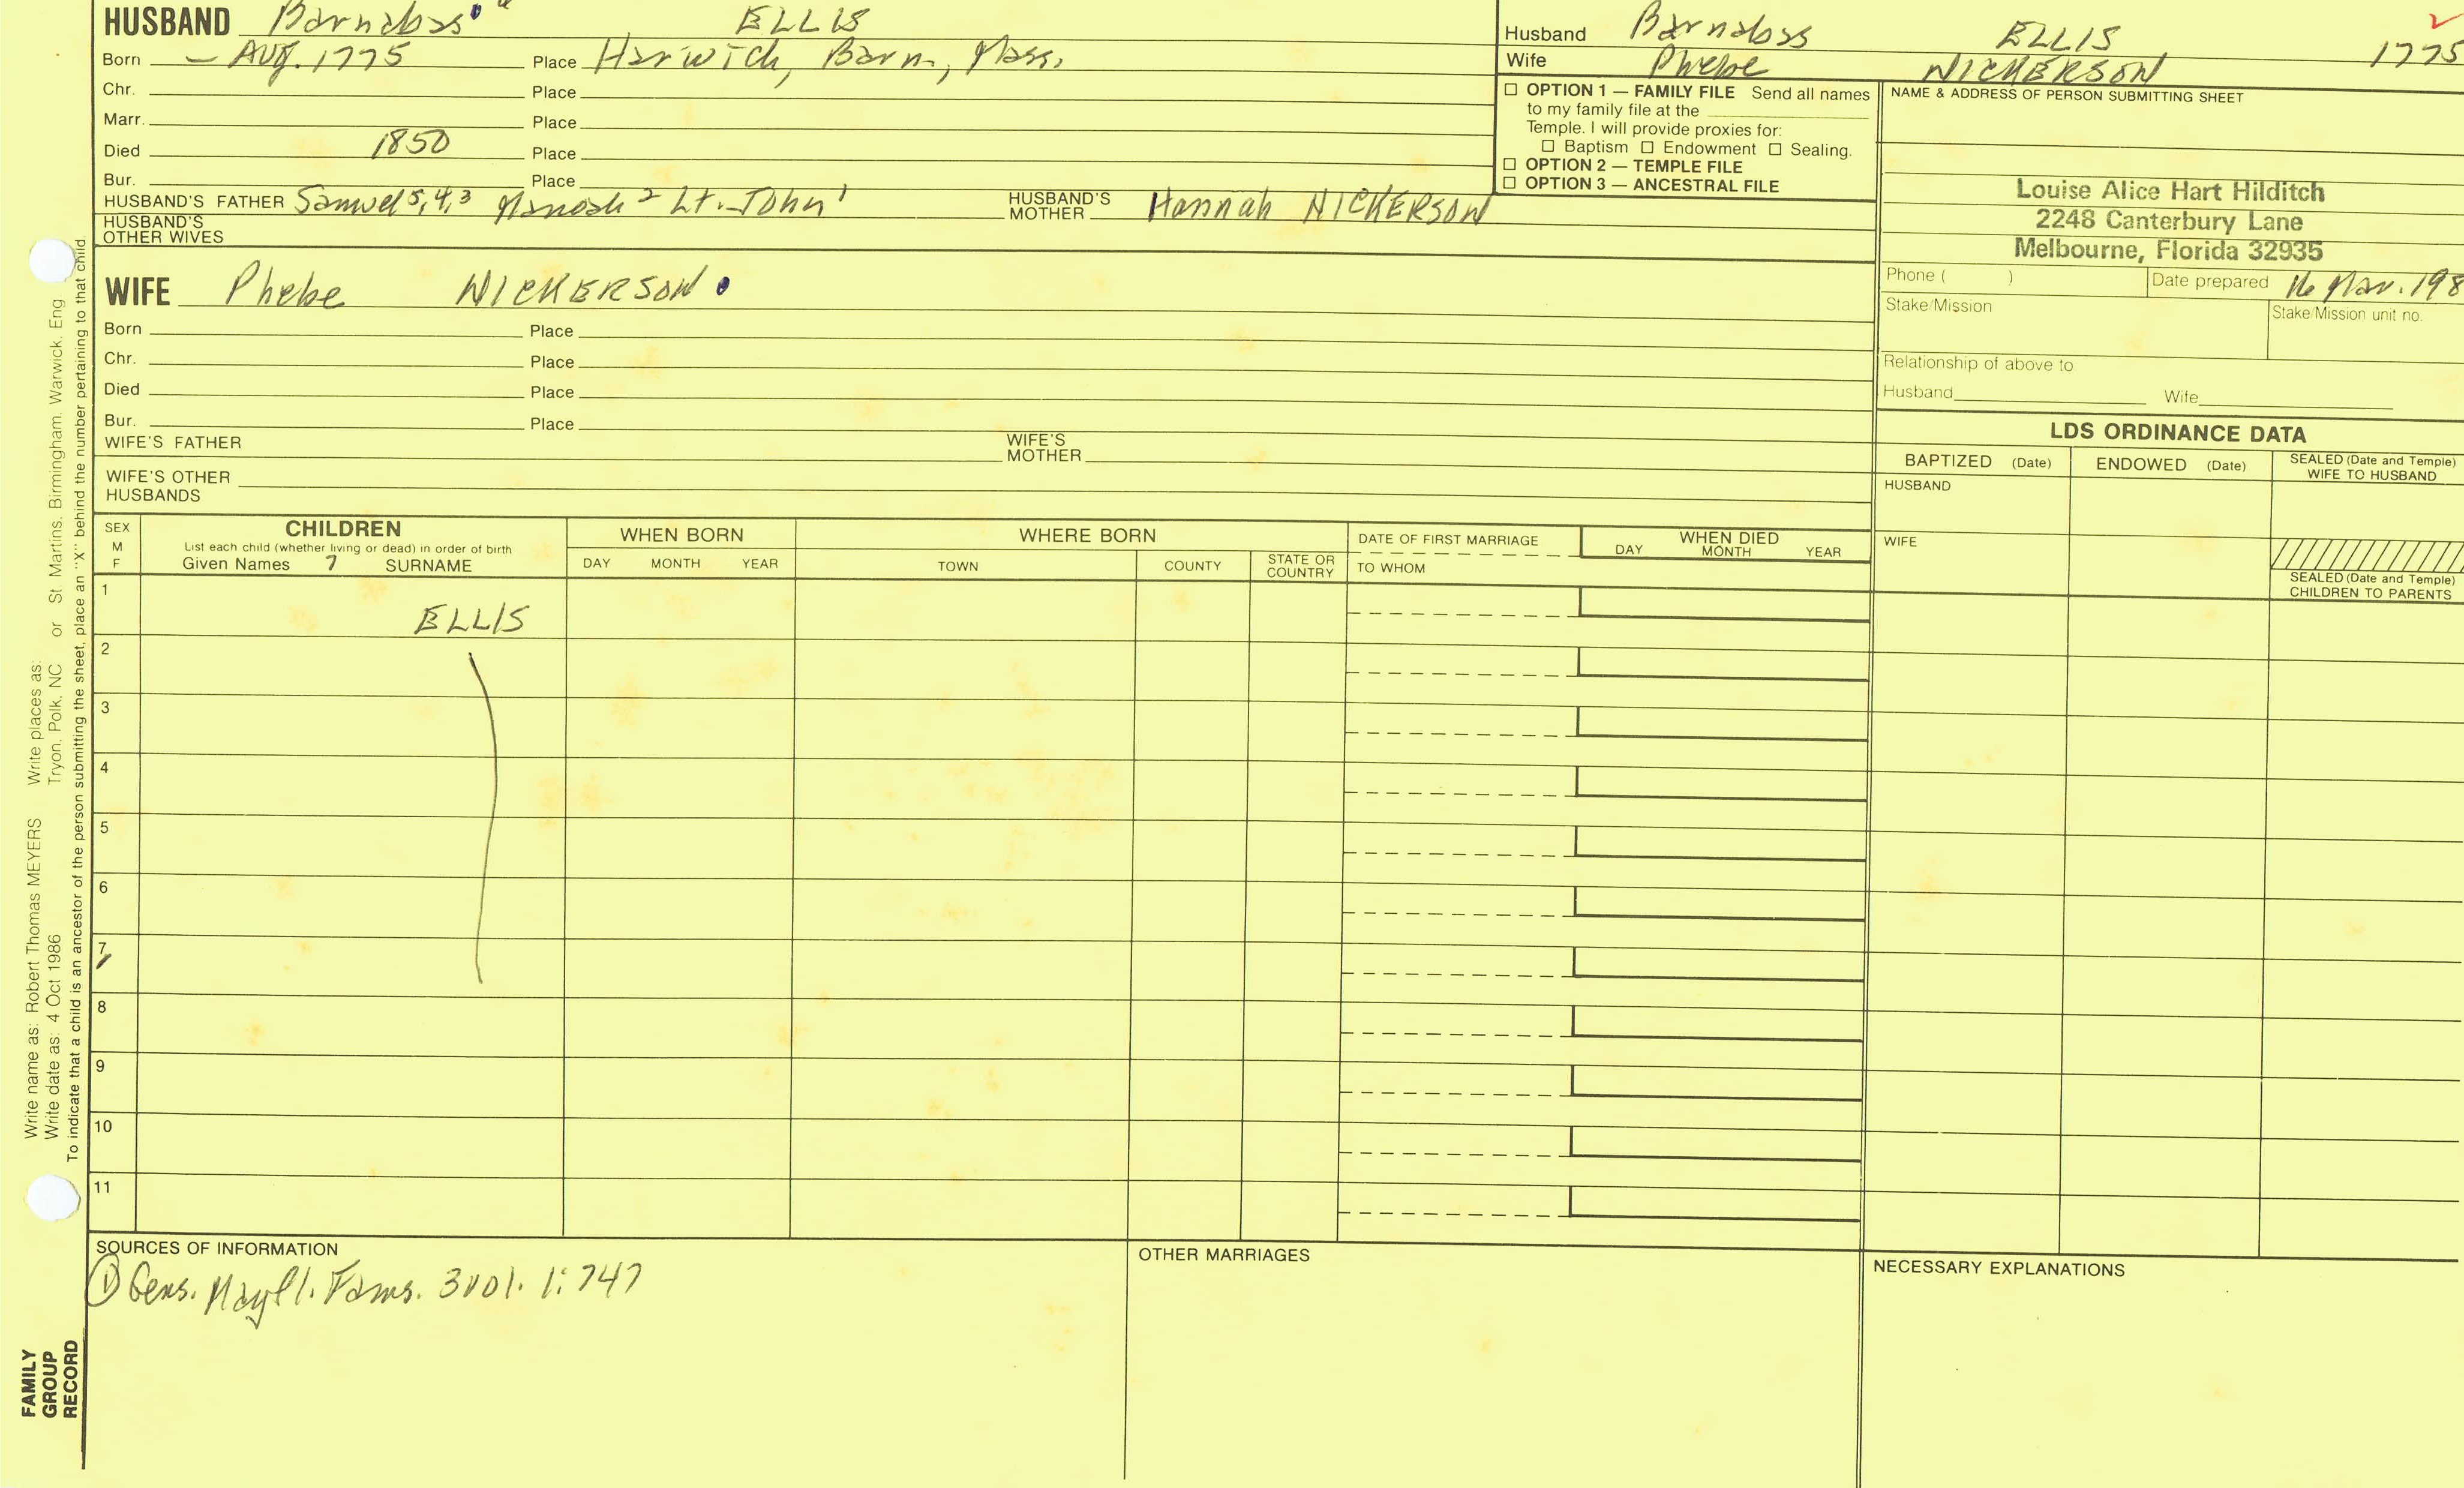 HUSBAND Barnabas ELLIS
Born — AUG. 1775 Place Harwich, Barn., Mass.
Chr. Place
Marr. Place
Died 1850 Place
Bur. Place
HUSBAND'S FATHER Samuel 5,4,3 Manoah 2 Lt. John 1 HUSBAND'S MOTHER Hannah NICKERSON
HUSBAND'S OTHER WIVES
Husband Barnabas ELLIS 1775
Wife Phebe NICKERSON
☐ OPTION 1 — FAMILY FILE Send all names
to my family file at the
Temple. I will provide proxies for:
☐ Baptism ☐ Endowment ☐ Sealing.
☐ OPTION 2 — TEMPLE FILE
☐ OPTION 3 — ANCESTRAL FILE
NAME & ADDRESS OF PERSON SUBMITTING SHEET
Louise Alice Hart Hilditch
2248 Canterbury Lane
Melbourne, Florida 32935
Phone ( ) Date prepared 16 Mar. 198
Stake/Mission Stake/Mission unit no.
Relationship of above to
Husband Wife
WIFE Phebe NICKERSON
Born Place
Chr. Place
Died Place
Bur. Place
WIFE'S FATHER WIFE'S MOTHER
WIFE'S OTHER
HUSBANDS
LDS ORDINANCE DATA
BAPTIZED (Date) ENDOWED (Date) SEALED (Date and Temple) WIFE TO HUSBAND
HUSBAND
WIFE
SEALED (Date and Temple)
CHILDREN TO PARENTS
SEX
M
F
CHILDREN
List each child (whether living or dead) in order of birth
Given Names 7 SURNAME
WHEN BORN
DAY MONTH YEAR
WHERE BORN
TOWN COUNTY STATE OR COUNTRY
DATE OF FIRST MARRIAGE
TO WHOM
WHEN DIED
DAY MONTH YEAR
1 ELLIS
2
3
4
5
6
7
8
9
10
11
SOURCES OF INFORMATION
① Gens. Mayfl. Fams. 3vol. 1:747
OTHER MARRIAGES
NECESSARY EXPLANATIONS
Write name as: Robert Thomas MEYERS Write places as:
Write date as: 4 Oct 1986 Tryon, Polk, NC or St Martins, Birmingham, Warwick, Eng
To indicate that a child is an ancestor of the person submitting the sheet, place an "X" behind the number pertaining to that child
FAMILY
GROUP
RECORD